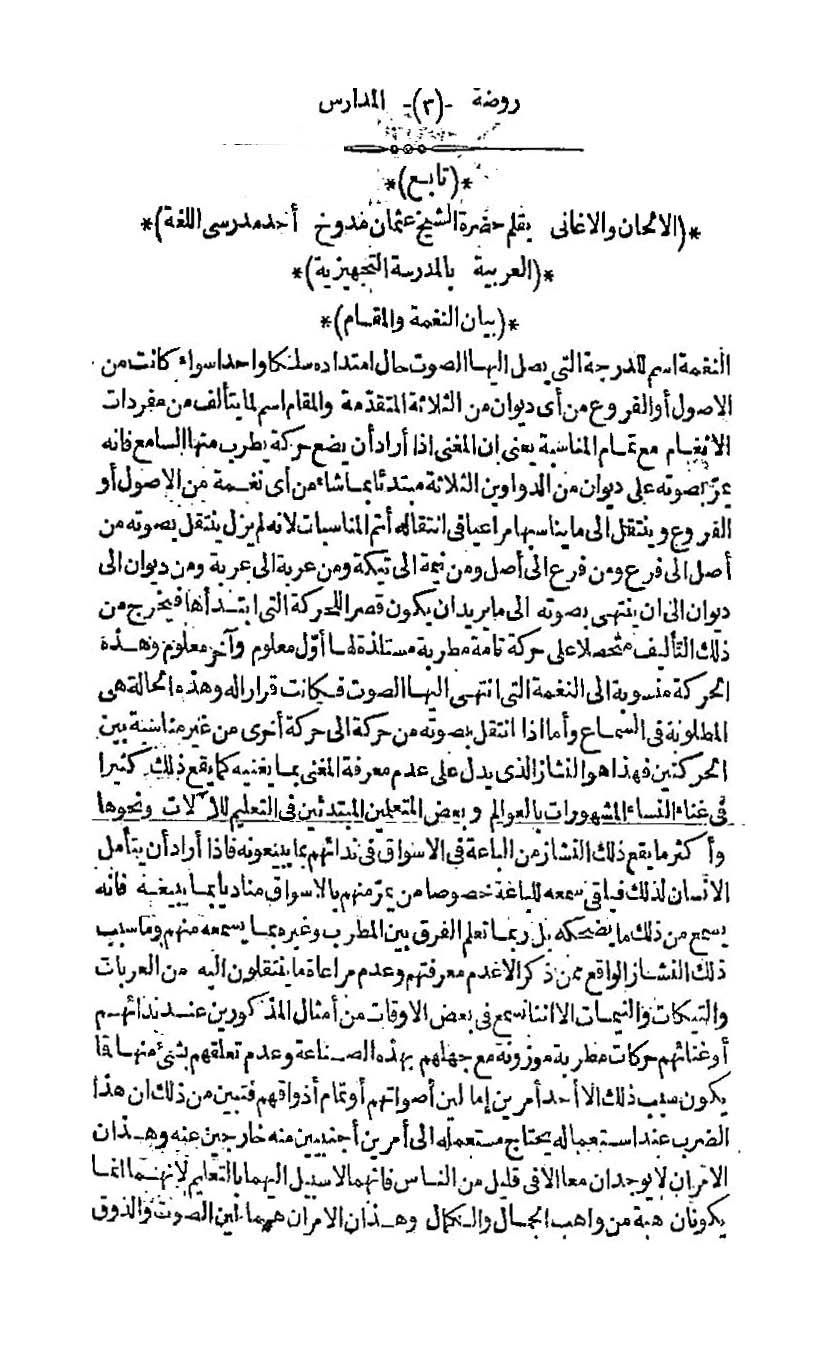 روضة -(٣)- المدارس
*(تابع)*
*(الالحان والاغانى بقلم حضرة الشيخ عثمان مدوخ أحد مدرسى اللغة)*
*(العربية بالمدرسة التجهيزية)*
*(بيان النغمة والمقام)*
النغمة اسم للدرجة التى يصل اليها الصوت حال امتداده سلكا واحدا سواء كانت من
الاصول أو الفروع من أى ديوان من الثلاثة المتقدّمة والمقام اسم لما يتألف من مفردات
الانغام مع تمام المناسبة يعنى ان المغنى اذا أراد أن يضع حركة يطرب منها السامع فانه
يمرّ بصوته على ديوان من الدواوين الثلاثة مبتدئا بما شاء من أى نغمة من الاصول أو
الفروع وينتقل الى ما يناسبها مراعيا فى انتقاله أتم المناسبات لانه لم يزل ينتقل بصوته من
أصل الى فرع ومن فرع الى أصل ومن نيمة الى تيكة ومن عربة الى عربة ومن ديوان الى
ديوان الى ان ينتهى بصوته الى ما يريد ان يكون قصر اللحركة التى ابتدأها فيخرج من
ذلك التأليف متحصلا على حركة تامة مطربة مستلذة لها أوّل معلوم وآخر معلوم وهذه
الحركة منسوبة الى النغمة التى انتهى اليها الصوت فكانت قرارا له وهذه الحالة هى
المطلوبة فى السماع وأما اذا انتقل بصوته من حركة الى حركة أخرى من غير مناسبة بين
الحركتين فهذا هو النشاز الذى يدل على عدم معرفة المغنى بما يغنيه كما يقع ذلك كثيرا
فى غناء النساء المشهورات بالعوالم وبعض المتعلمين المبتدئين فى التعليم للآلات ونحوها
وأكثر ما يقع ذلك النشاز من الباعة فى الاسواق فى ندائهم بما يبيعونه فاذا أراد أن يتأمل
الانسان لذلك فيلقى سمعه للباعة خصوصا من يمرّ منهم بالاسواق مناديا بما يبيعه فانه
يسمع من ذلك ما يضحكه بل ربما تعلم الفرق بين المطرب وغيره بما يسمعه منهم وما سبب
ذلك النشاز الواقع ممن ذكر الا عدم معرفتهم وعدم مراعاة ما ينتقلون اليه من العربات
والتيكات والنيمات الا اننا نسمع فى بعض الاوقات من أمثال المذكورين عند ندائهم
أو غنائهم حركات مطربة موزونة مع جهلهم بهذه الصناعة وعدم تعلقهم بشئ منها فا
يكون سبب ذلك الا أحد أمرين إما لين أصواتهم أو تمام أذواقهم فتبين من ذلك ان هذا
الضرب عند استعماله يحتاج مستعمله الى أمرين أجنبيين منه خارجين عنه وهذان
الامران لا يوجدان معا الا فى قليل من الناس فانهما لا سبيل اليهما بالتعليم لانهما انما
يكونان هبة من واهب الجمال والكمال وهذان الامران هما لين الصوت والذوق